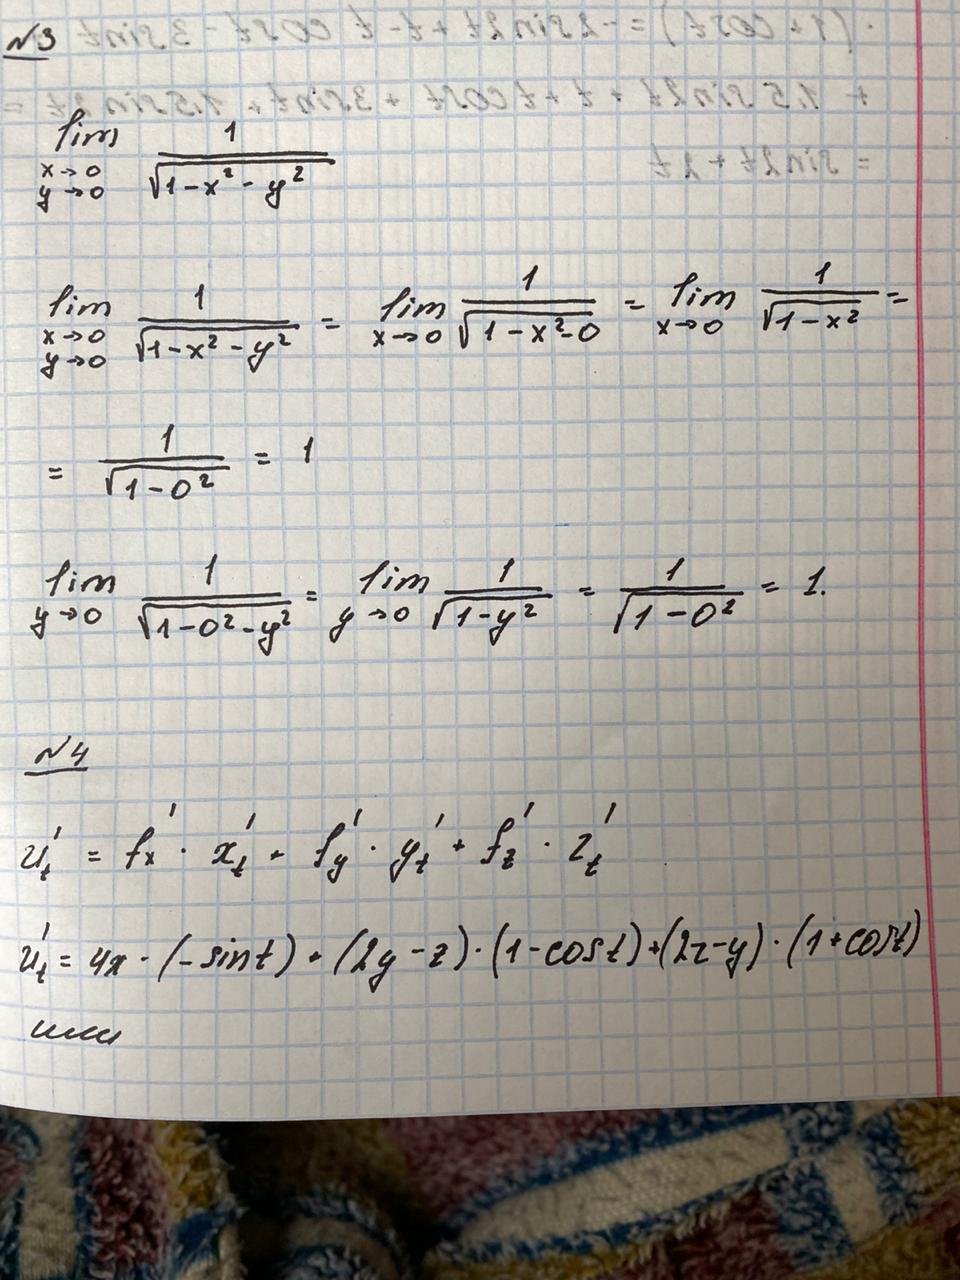 №3
lim x→0 y→0 1/√(1-x²-y²)
lim x→0 y→0 1/√(1-x²-y²) = lim x→0 1/√(1-x²-0) = lim x→0 1/√(1-x²) =
= 1/√(1-0²) = 1
lim y→0 1/√(1-0²-y²) = lim y→0 1/√(1-y²) = 1/√(1-0²) = 1.
№4
u't = fx' · x't + fy' · y't + fz' · z't
u't = 4x · (-sint) + (2y-z) · (1-cost) + (2z-y) · (1+cost)
или